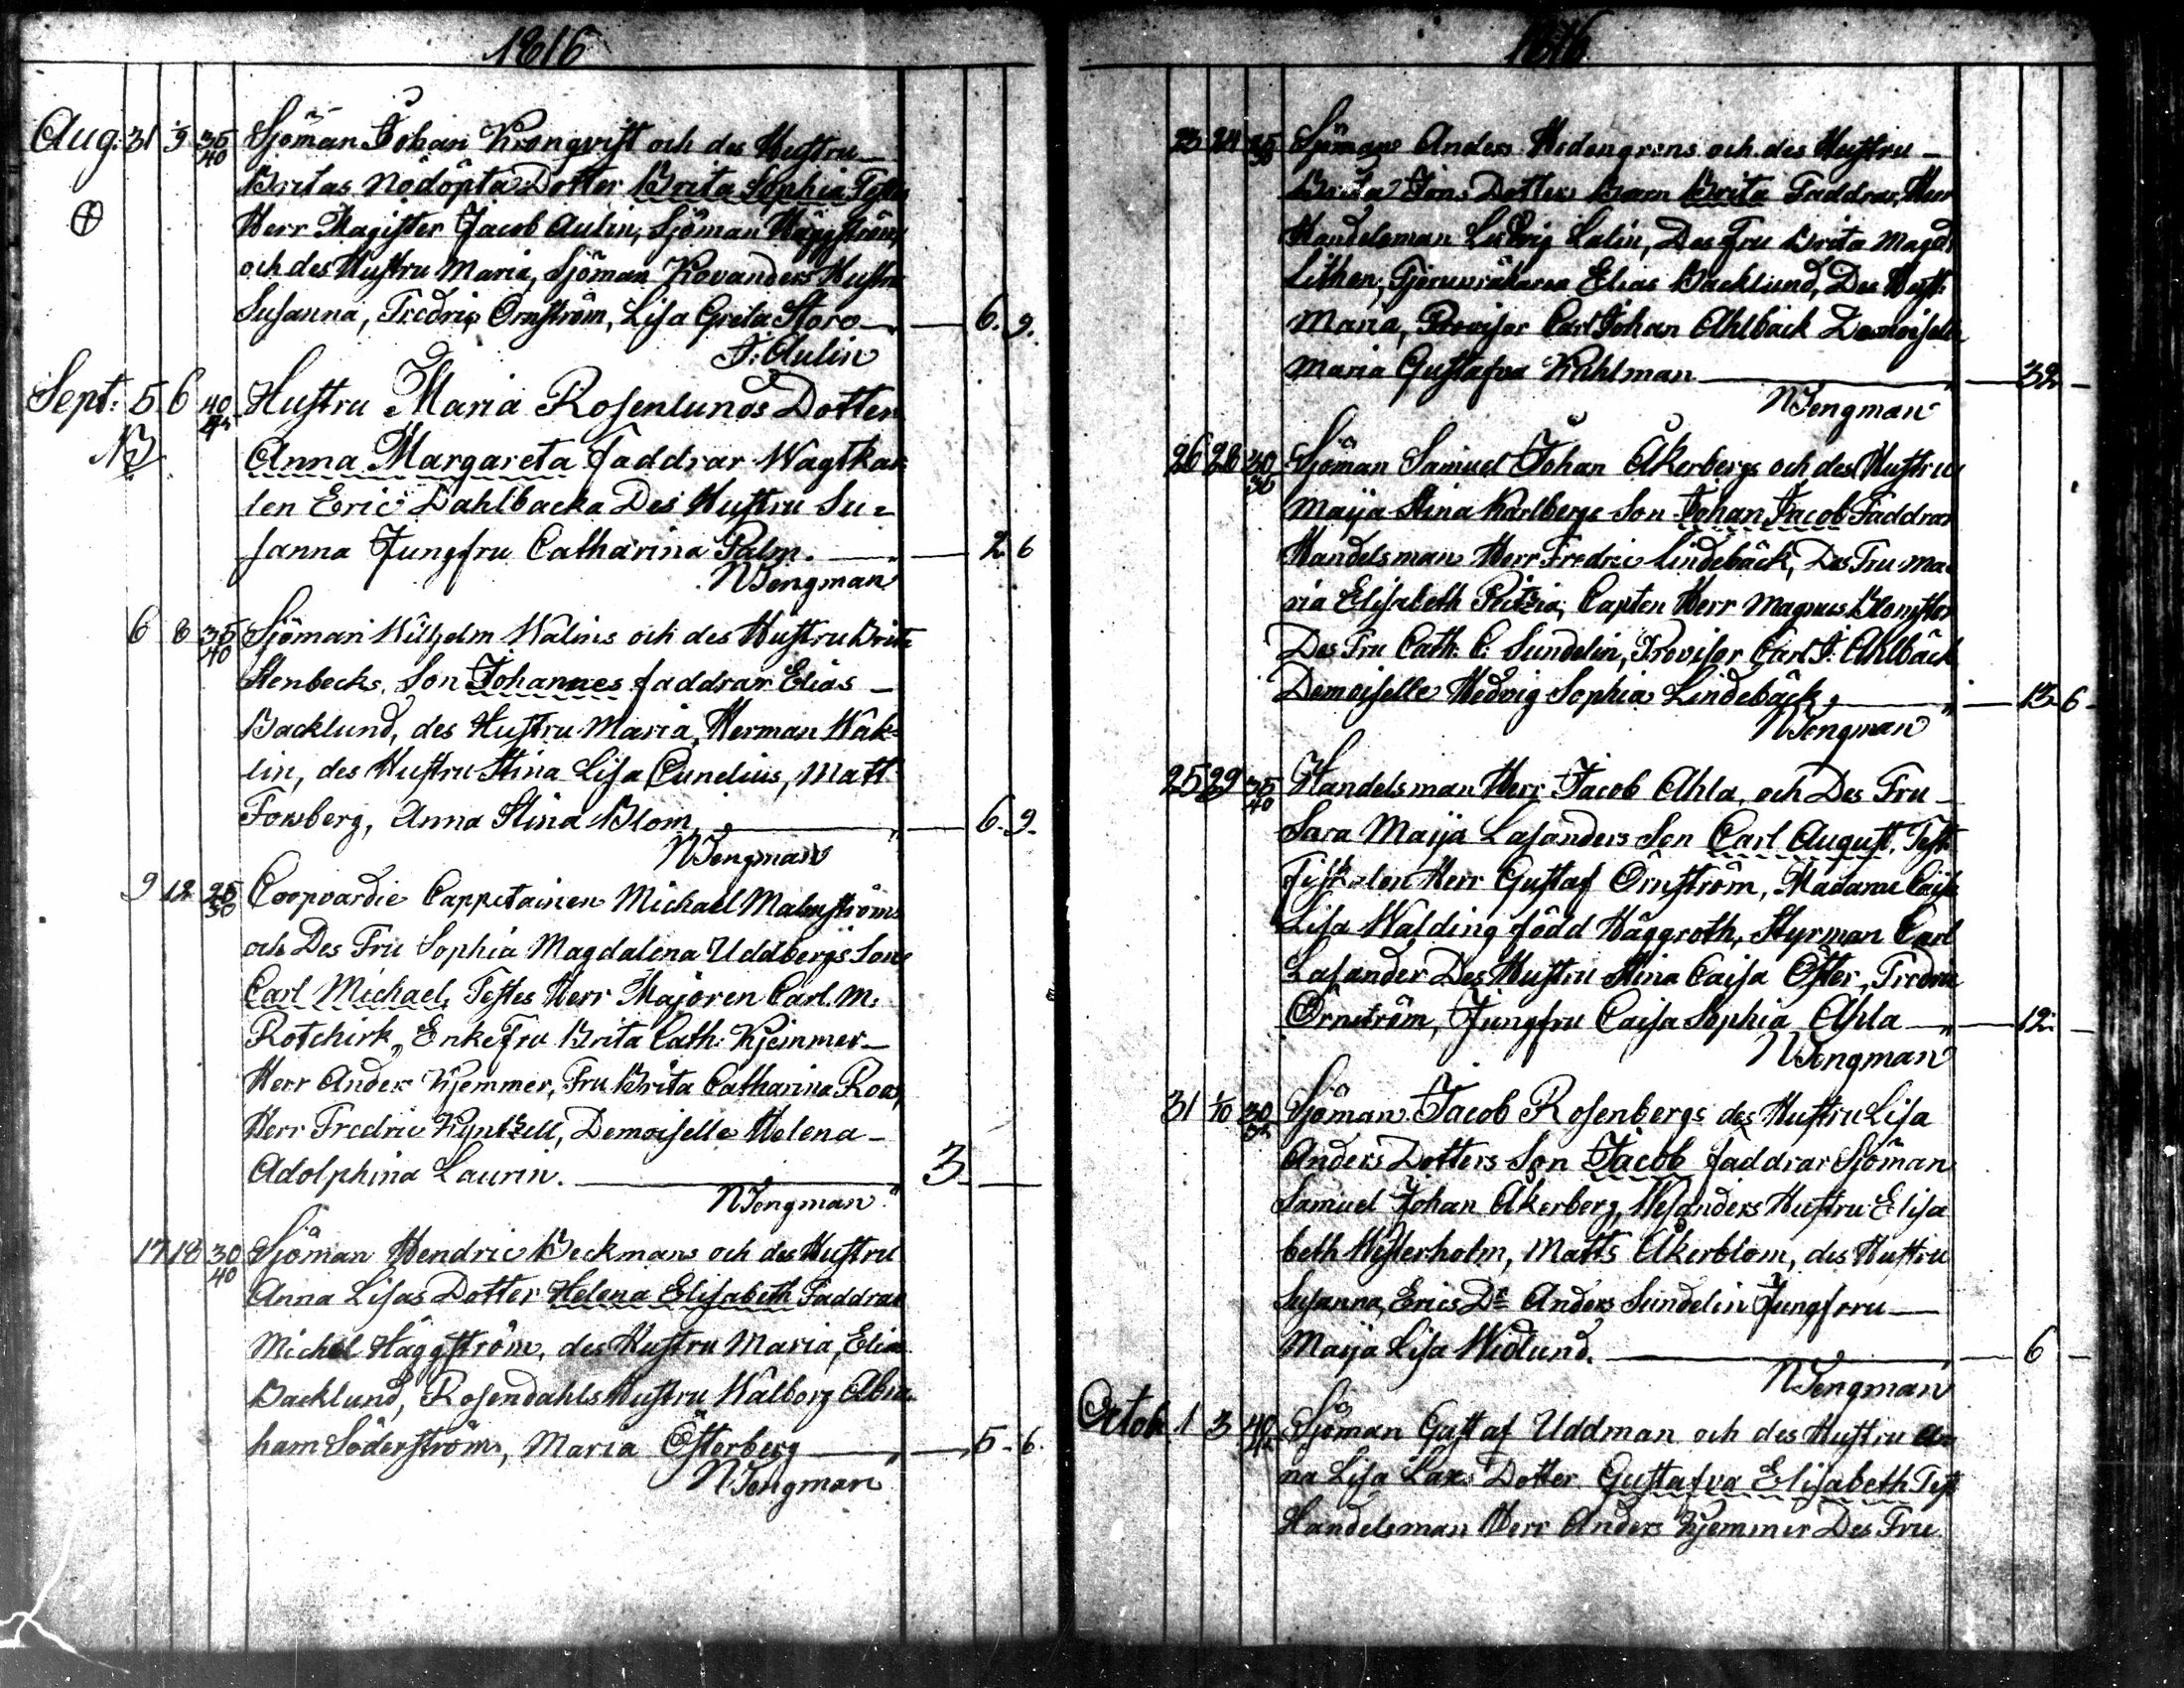 1816
Aug. 31 1/9 35/40 Sjöman Johan Kronqvist och des Hustru
Britas Nödöpta Dotter Brita Sophia Testes
Herr Magister Jacob Aulin, Sjöman Häggström,
och des Hustru Maria, Sjöman Kovanders Hustru
Susanna, Fredric Örnström, Lisa Greta Storo — 6. 9.
J: Aulin
Sept: 5 6 40 Hustru Maria Rosenlunds Dotter
Anna Margareta Faddrar Wagtkar
len Eric Dahlbacka Des Hustru Su=
sanna Jungfru Catharina Palm. — 2 6
N Tengman
6 8 35/40 Sjöman Wilhelm Walins och des Hustru Brita
Stenbecks Son Johannes faddrar Elias
Backlund, des Hustru Maria, Herman Wak=
lin, des Hustru Stina Lisa Cunelius, Matt
Forsberg, Anna Stina Blom, — 6. 9.
N Tengman
9 12 25/30 Coopvardie Cappitainen Michael Malmströms
och Des Fru Sophia Magdalena Uddbergs Son
Carl Michael, Testes Herr Majoren Carl. M:
Rotchirk, Enke Fru Brita Cath: Kjemmer
Herr Anders Kjemmer, Fru Brita Catharina Roos,
Herr Fredric Kyntzell, Demoiselle Helena
Adolphina Laurin. — 3
N Tengman
17 18 30/40 Sjöman Hendric Beckmans och des Hustru
Anna Lisas Dotter Helena Elisabeth Faddrar
Michel Häggström, des Hustru Maria, Elias
Backlund, Rosendahls Hustru Walborg Abra
ham Söderström, Maria Österberg — 5 6.
N Tengman
1816
23 24 Sjöman Anders Hedengrens och des Hustru
Brita Jons Dotters Barn Brita Faddrar, Herr
Handelsman Ledvig Lalin, Des Fru Brita Magd:
Lithen, Elias Backlund, Des Hust:
Maria, Provisor Carl Johan Ahlbäck Demoiselle
Maria Gustafva Kahlman — 32
N Tengman
26 28 30/36 Sjöman Samuel Johan Åkerbergs och des Hustru
Maija Stina Karlbergs Son Johan Jacob Faddrar
Handelsman Herr Fredric Lindebäck, Des Fru Ma
ria Elisabeth Peitzia, Capten Herr Magnus
Des Fru Cath: C: Sundelin, Provisor Carl J: Ahlbäck
Demoiselle Hedvig Sophia Lindebäck, — 13 6
N Tengman
25 29 35/40 Handelsman Herr Jacob Ahla, och Des Fru
Sara Maija Lasanders Son Carl August, Test:
Fiskalen Herr Gustaf Örnström, Madame Caisa
Lisa Walding född Häggroth, Styrman Carl
Lasander Des Hustru Stina Caisa Öster, Fredric
Örnström, Jungfru Caisa Sophia Ahla — 12
N Tengman
31 1/10 30/32 Sjöman Jacob Rosenbergs des Hustru Lisa
Anders Dotters Son Jacob faddrar Sjöman
Samuel Johan Åkerberg, Hustru Elisa
beth Westerholm, Matts Åkerblom, des Hustru
Susanna, Erics Dr Anders Sundelin Jungfrru
Maija Lisa Widlund. — 6
N Tengman
Octob. 1 3 Sjöman Gustaf Uddman och des Hustru An
na Lisa Lax: Dotter Gustafva Elisabeth Test
Handelsman Herr Anders Kjemmer Des Fru